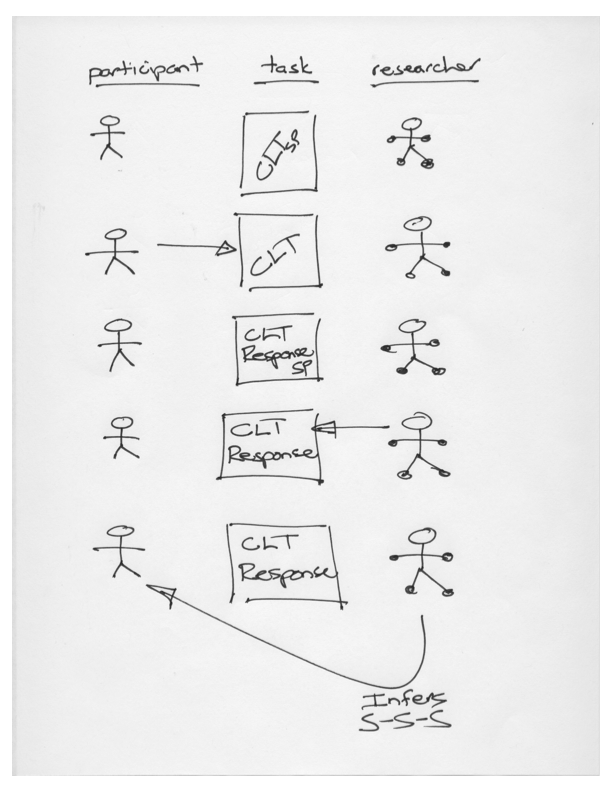 participant task researcher
CLT
SP
CLT
CLT
Response
SP
CLT
Response
CLT
Response
Infers
S-S-S